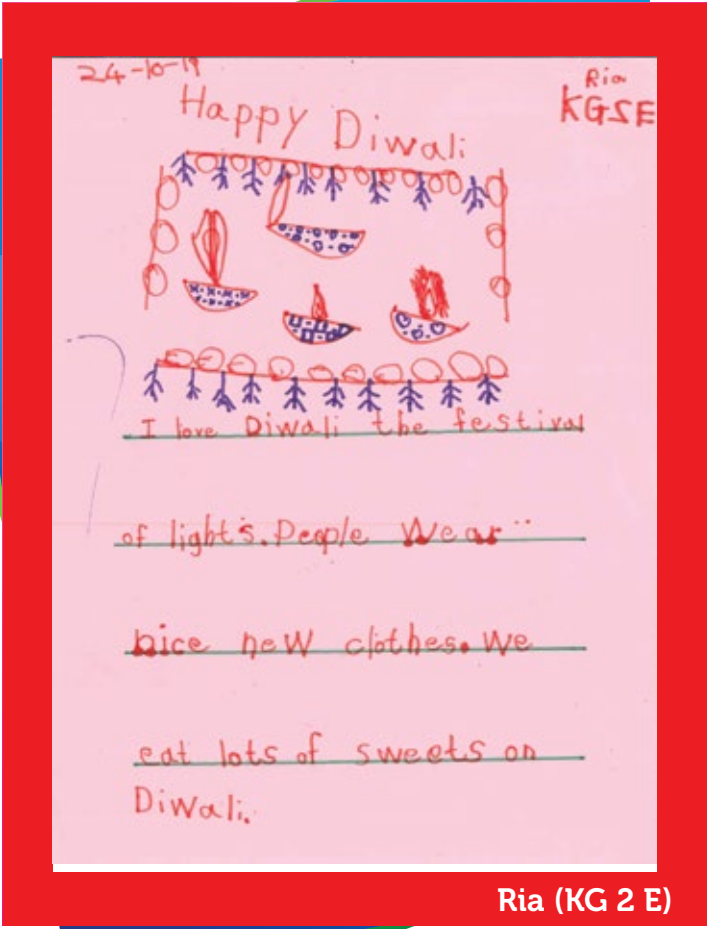 24-10-19
Ria
KGSE
Happy Diwali
I love Diwali the festival
of light's. People Wear
nice new clothes. We
eat lots of sweets on
Diwali.
Ria (KG 2 E)